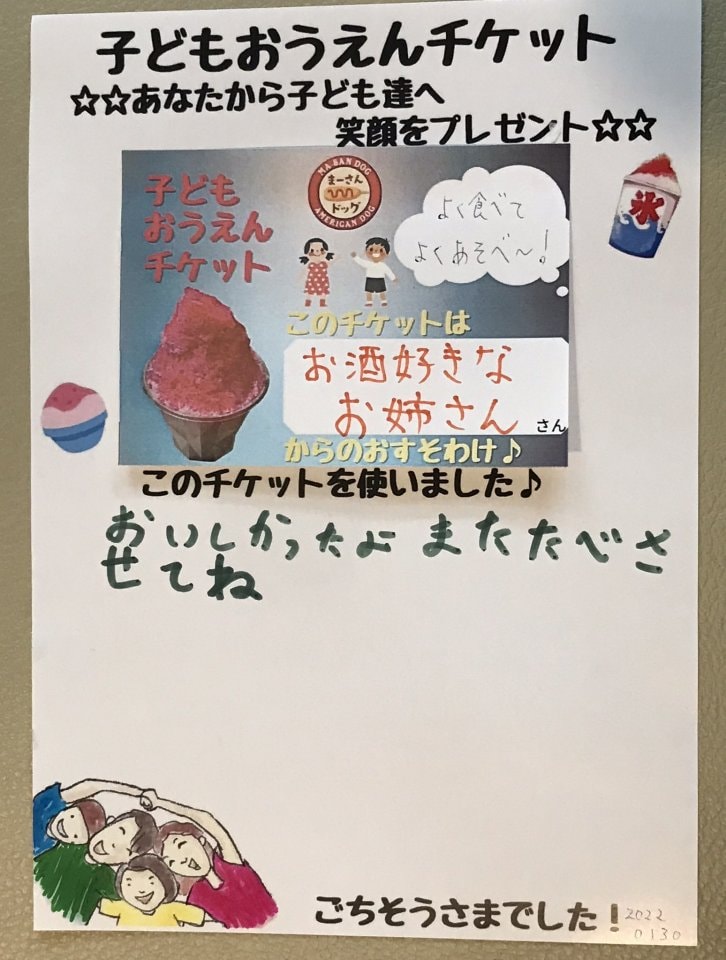 子どもおうえんチケット
☆☆あなたから子ども達へ
笑顔をプレゼント☆☆
子ども
おうえん
チケット
MA-SAN DOG
まーさん
ドッグ
AMERICAN DOG
よく食べて
よくあそべ〜!
氷
このチケットは
お酒好きな
お姉さん
さん
からのおすそわけ♪
このチケットを使いました♪
おいしかったよ またたべさ
せてね
ごちそうさまでした!
2022
0130